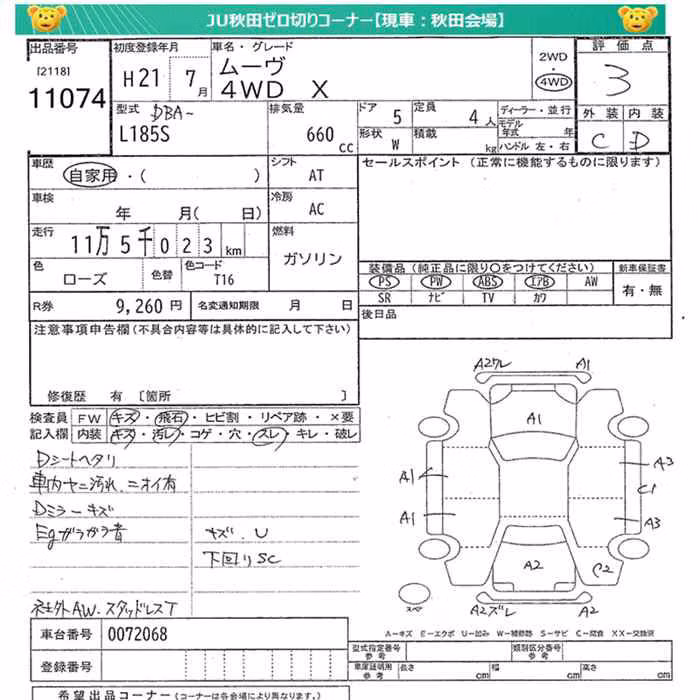 JU秋田ゼロ切りコーナー【現車：秋田会場】
出品番号
[2118]
11074
初度登録年月
H21 7月
車名・グレード
ムーヴ
4WD X
2WD
4WD
評価点
3
外装 内装
C D
型式 DBA-
L185S
排気量
660 cc
ドア 5
定員 4人
形状 W
積載 kg
ディーラー・並行
モデル年式 年
ハンドル 左・右
車歴
自家用・( )
シフト
AT
セールスポイント (正常に機能するものに限ります)
車検
年 月( 日)
冷房
AC
走行
11万5千023km
燃料
ガソリン
色
ローズ
色替
色コード
T16
装備品(純正品に限り○をつけてください)
新車保証書
PS PW ABS エアB AW
有・無
SR ナビ TV カワ
R券 9,260円
名変通知期限 月 日
後日品
注意事項申告欄(不具合内容等は具体的に記入して下さい)
修復歴 有 [箇所 ]
検査員 FW キズ・飛石・ヒビ割・リペア跡・×要
記入欄 内装 キズ・汚レ・コゲ・穴・スレ・キレ・破レ
Dシートヘタリ
車内ヤニ汚れ、ニオイ有
Dミラーキズ
Egガラガラ音
キズ、U
下回りSC
社外AW、スタッドレスT
A2ワレ A1
A1
A1
A3
C1
A1
A3
A2
C2
スペア
A2ズレ A2
A-キズ E-エクボ U-凹み W-補修跡 S-サビ C-腐食 XX-交換済
車台番号 0072068
登録番号
型式指定番号
参考
類別区分番号
参考
車庫証明用
参考
長さ cm
幅 cm
高さ cm
希望出品コーナー(コーナーは各会場により異なります。)